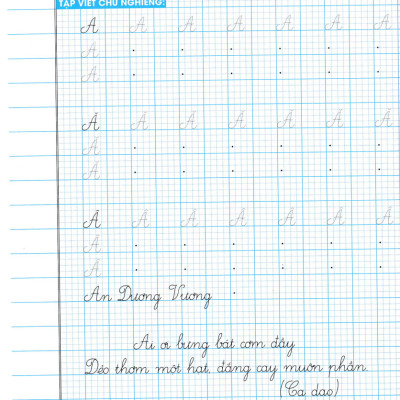 TẬP VIẾT CHỮ NGHIÊNG:
A A A A A A A
A
A
Ă Ă Ă Ă Ă Ă Ă
Ă
Ă
Â Â Â Â Â Â Â
Â
Â
An Dương Vương
Ai ơi bưng bát cơm đầy
Dẻo thơm một hạt, đắng cay muôn phần.
(Ca dao)